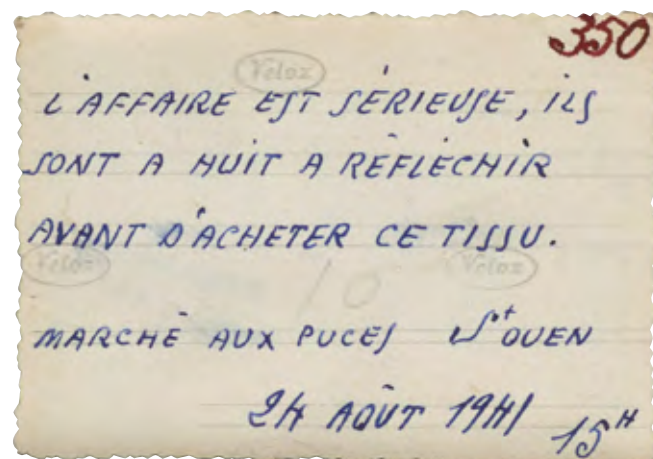 350
Veloz
L'AFFAIRE EST SÉRIEUSE, ILS
SONT A HUIT A RÉFLÉCHIR
AVANT D'ACHETER CE TISSU.
Veloz Veloz
10
MARCHÉ AUX PUCES St OUEN
24 AOÛT 1941 15H